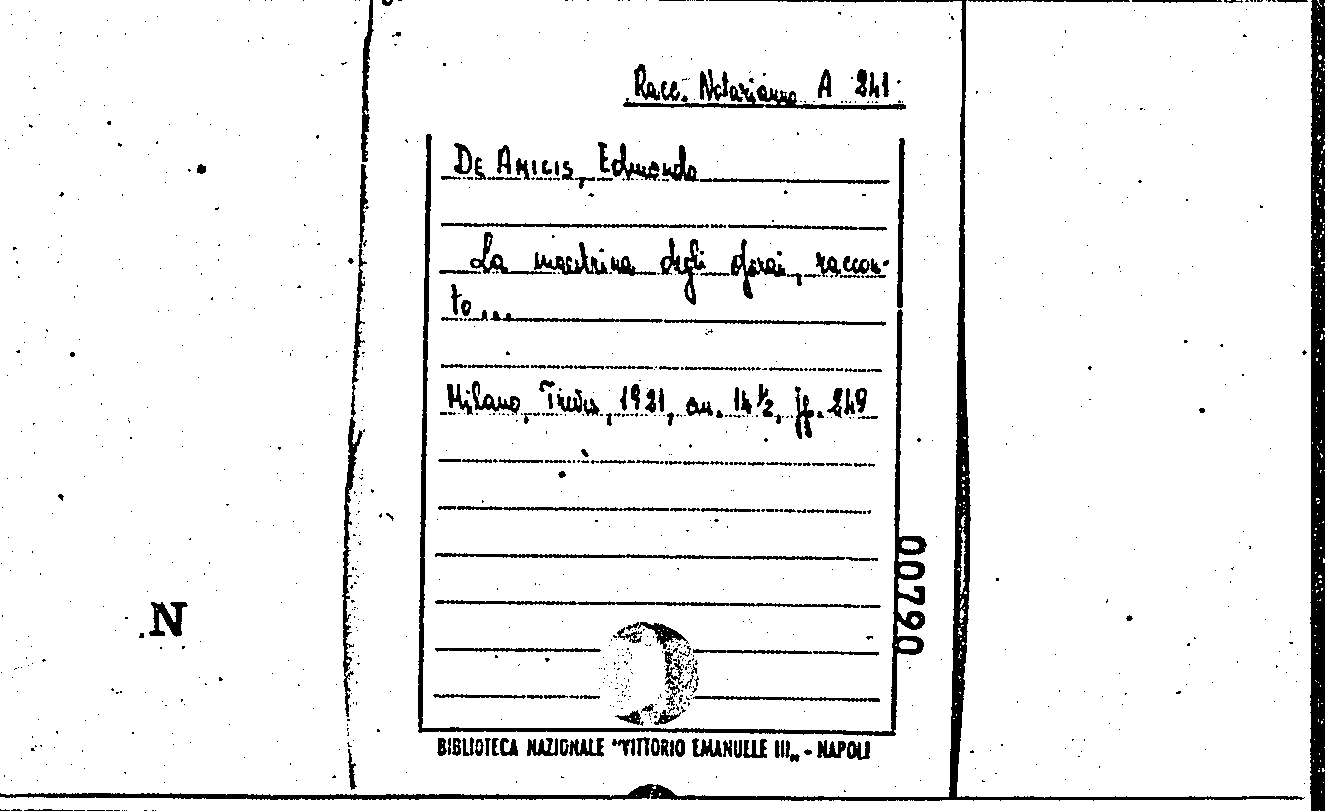 Racc. Notarianno A 241
DE AMICIS, Edmondo
La maestrina degli operai, raccon-
to...
Milano, Treves, 1921, cm. 14 ½, pp. 249
00790
N
BIBLIOTECA NAZIONALE "VITTORIO EMANUELE III„ - NAPOLI